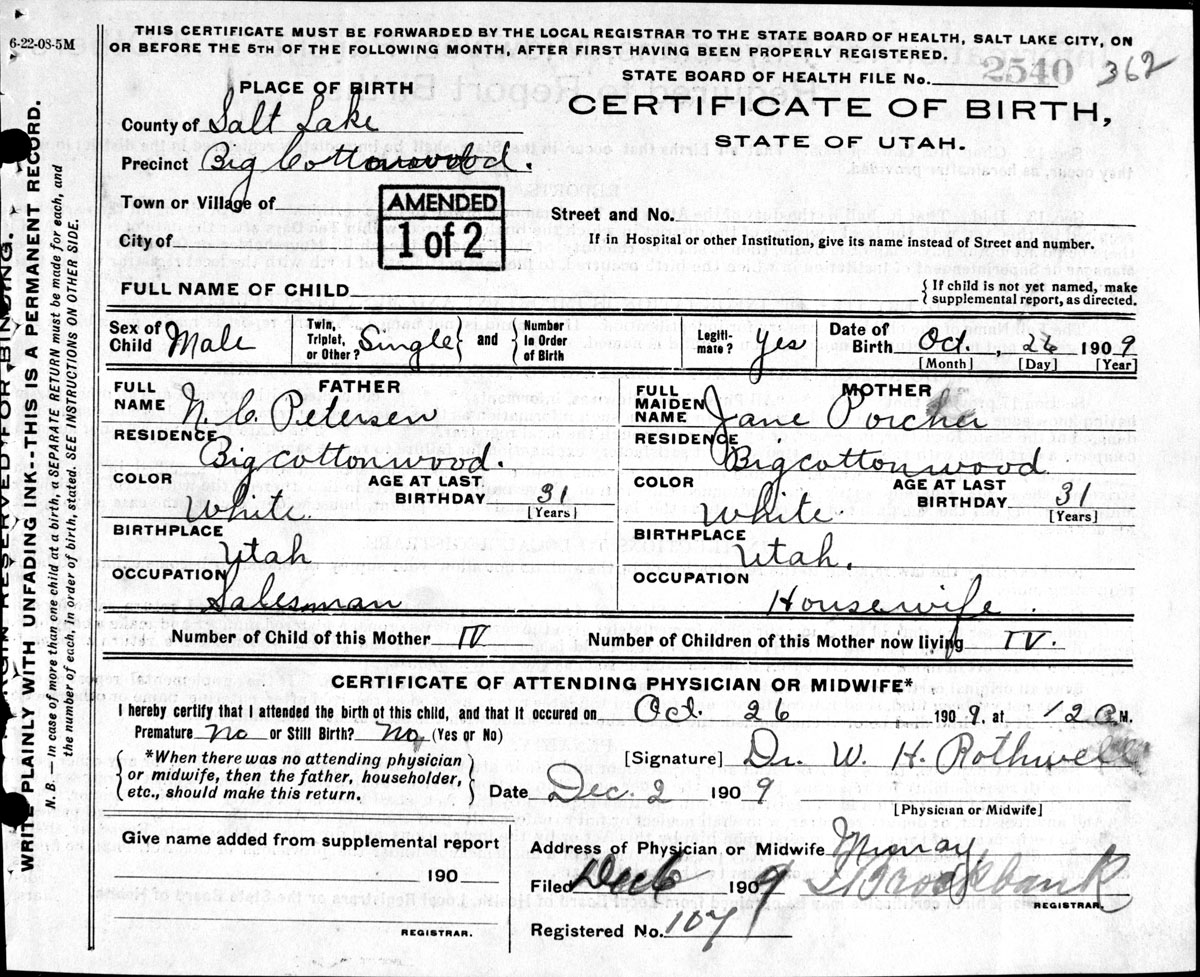 6-22-08-5M
THIS CERTIFICATE MUST BE FORWARDED BY THE LOCAL REGISTRAR TO THE STATE BOARD OF HEALTH, SALT LAKE CITY, ON
OR BEFORE THE 5TH OF THE FOLLOWING MONTH, AFTER FIRST HAVING BEEN PROPERLY REGISTERED.
STATE BOARD OF HEALTH FILE No. 2540 362
PLACE OF BIRTH
CERTIFICATE OF BIRTH,
STATE OF UTAH.
County of Salt Lake
Precinct Big Cottonwood.
Town or Village of
AMENDED
1 of 2
Street and No.
City of
If in Hospital or other Institution, give its name instead of Street and number.
FULL NAME OF CHILD
{ If child is not yet named, make
supplemental report, as directed.
Sex of Child Male Twin, Triplet, or Other? Single } and { Number In Order of Birth Legiti- mate? Yes Date of Birth Oct. , 26 1909
[Month] [Day] [Year]
FATHER
FULL NAME N. C. Petersen
MOTHER
FULL MAIDEN NAME Jane Porcher
RESIDENCE Big cottonwood.
RESIDENCE Big cottonwood
COLOR White AGE AT LAST BIRTHDAY 31 [Years]
COLOR White. AGE AT LAST BIRTHDAY 31 [Years]
BIRTHPLACE Utah
BIRTHPLACE Utah.
OCCUPATION Salesman
OCCUPATION Housewife.
Number of Child of this Mother IV Number of Children of this Mother now living IV.
CERTIFICATE OF ATTENDING PHYSICIAN OR MIDWIFE*
I hereby certify that I attend the birth of this child, and that it occured on Oct. 26 1909, at 12 A.M.
Premature No or Still Birth? No (Yes or No)
[Signature] Dr. W. H. Rothwell
{ *When there was no attending physician
or midwife, then the father, householder,
etc., should make this return. }
Date Dec. 2 1909
[Physician or Midwife]
Give name added from supplemental report
190
REGISTRAR.
Address of Physician or Midwife Murray
Filed Dec 6 1909 Brockbank
REGISTRAR
Registered No. 107
MARGIN RESERVED FOR BINDING.
WRITE PLAINLY WITH UNFADING INK--THIS IS A PERMANENT RECORD.
N. B.— In case of more than one child at a birth, a SEPARATE RETURN must be made for each, and
the number of each, in order of birth, stated. SEE INSTRUCTIONS ON OTHER SIDE.